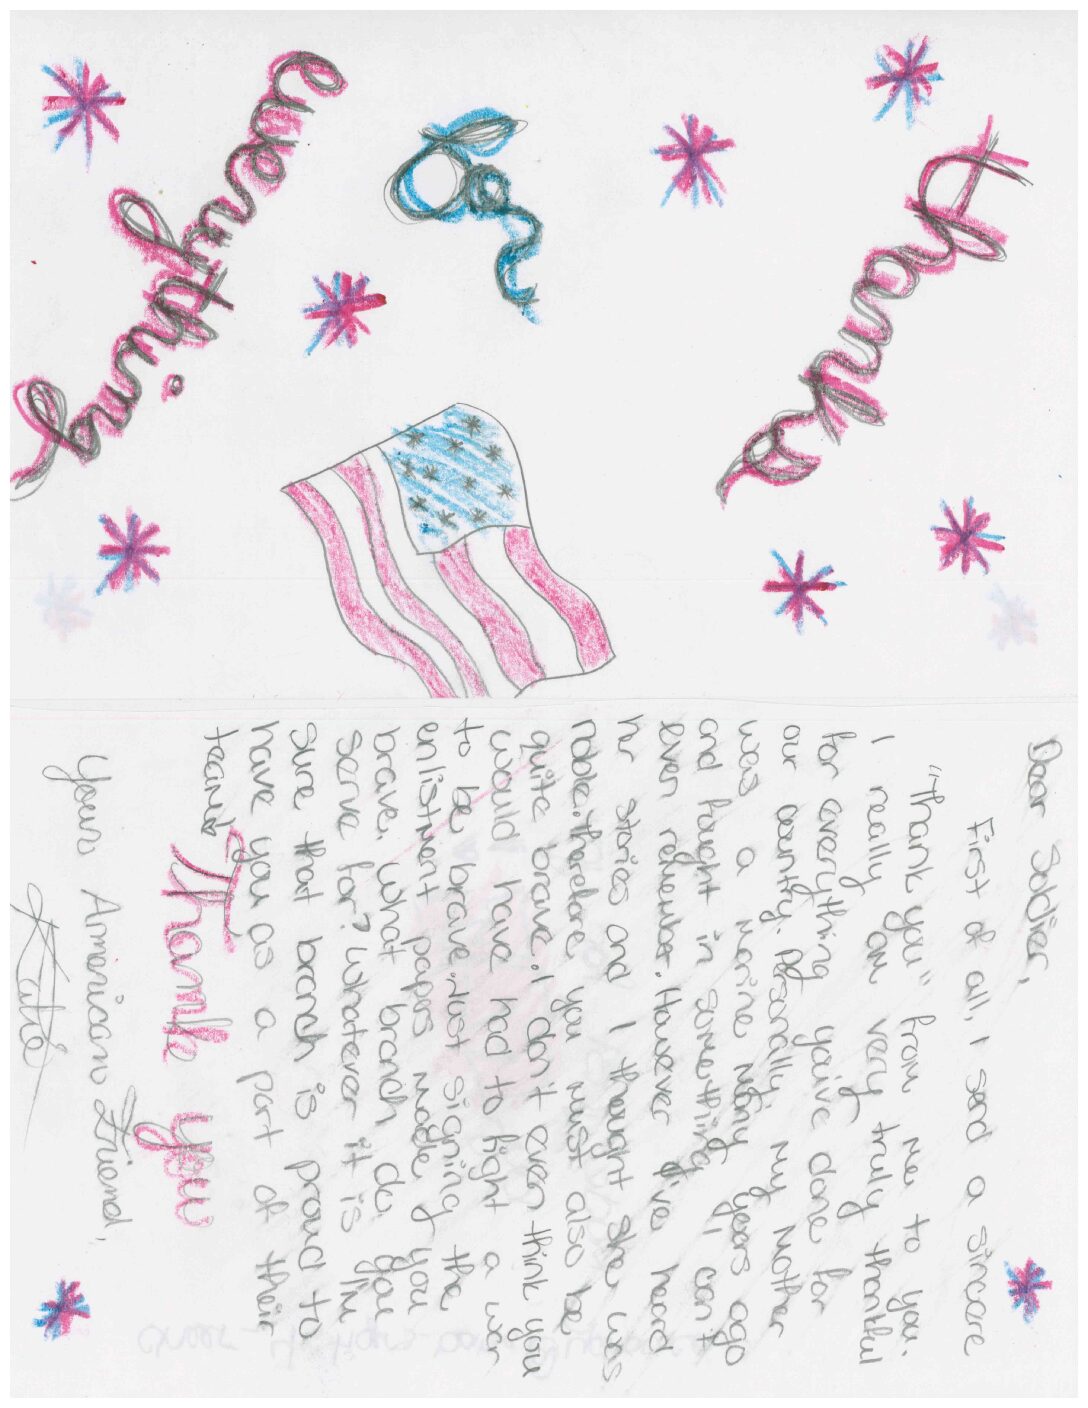 Thanks
for
everything
Dear Soldier,
First of all, I send a sincere
"Thank you" from me to you.
I really am very truly thankful
for everything you've done for
our country. Personally, my mother
was a Marine many years ago
and fought in something I can't
ever remember. However I've heard
her stories and I thought she was
noble. therefore you must also be
quite brave. I don't even think you
would have had to fight a war
to be brave. Just signing the
enlistment papers made you
brave. What branch do you
serve for? Whatever it is I'm
sure that branch is proud to
have you as a part of their
team!
Thank you
Your American Friend,
Katie